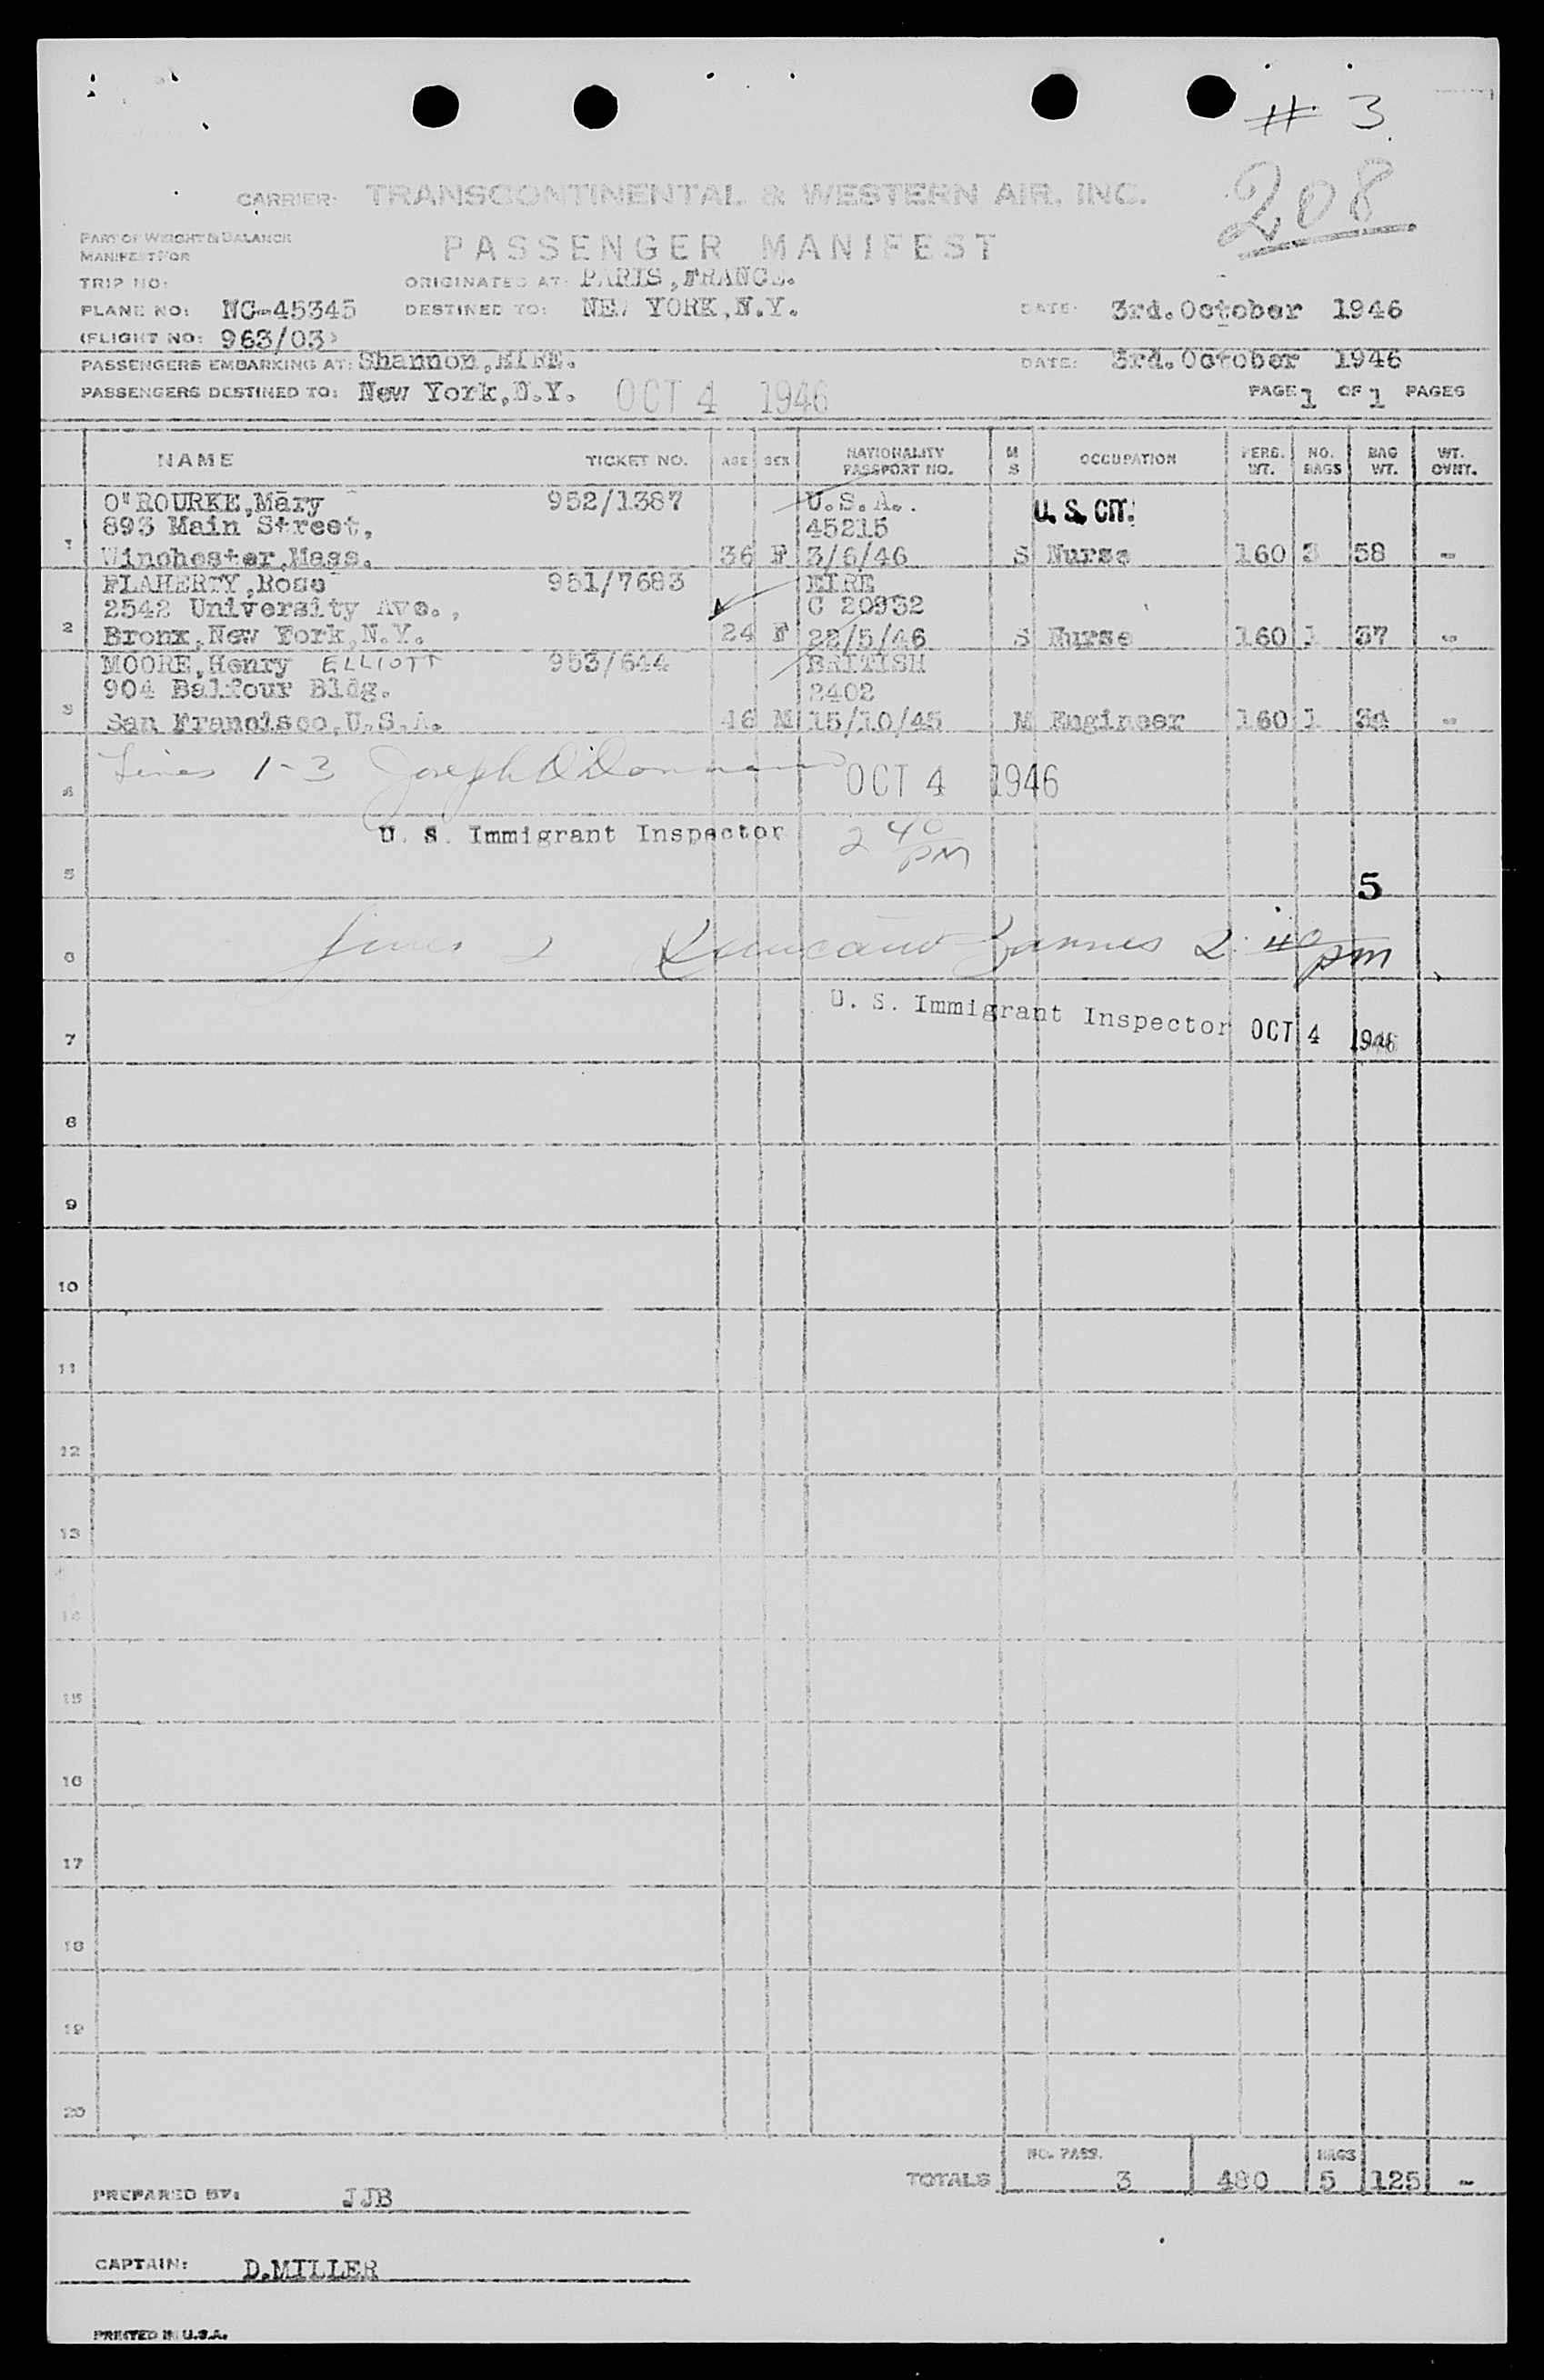 # 3
208
CARRIER: TRANSCONTINENTAL & WESTERN AIR, INC.
PART OF WEIGHT & BALANCE
MANIFEST FOR
PASSENGER MANIFEST
TRIP NO:
ORIGINATED AT: PARIS,FRANCE.
PLANE NO: NC-45345 DESTINED TO: NEW YORK,N.Y. DATE: 3rd.October 1946
(FLIGHT NO: 963/03)
PASSENGERS EMBARKING AT: Shannon,EIRE. DATE: 3rd.October 1946
PASSENGERS DESTINED TO: New York,N.Y. OCT 4 1946 PAGE 1 OF 1 PAGES
NAME TICKET NO. AGE SEX NATIONALITY PASSPORT NO. M S OCCUPATION PERS. WT. NO. BAGS BAG WT. WT. OVNT.
O"ROURKE,Mary 952/1387 U.S.A. U. S. CIT.
893 Main Street, 45215
1 Winchester,Mass. 36 F 3/6/46 S Nurse 160 3 58 -
FLAHERTY,Rose 951/7683 EIRE
2542 University Ave., C 20932
2 Bronx,New York,N.Y. 24 F 22/5/46 S Nurse 160 1 37 -
MOORE,Henry ELLIOTT 953/644 BRITISH
904 Balfour Bldg. 2402
3 San Francisco,U.S.A. 46 M 15/10/45 M Engineer 160 1 34 -
Lines 1-3 Joseph OCT 4 1946
4
U. S. Immigrant Inspector 2 40 PM
5
5
6 Lines 2 2:40 pm
U. S. Immigrant Inspector OCT 4 1946
7
8
9
10
11
12
13
14
15
16
17
18
19
20
NO. PASS. BAGS
TOTALS 3 480 5 125 -
PREPARED BY: JJB
CAPTAIN: D.MILLER
PRINTED IN U.S.A.